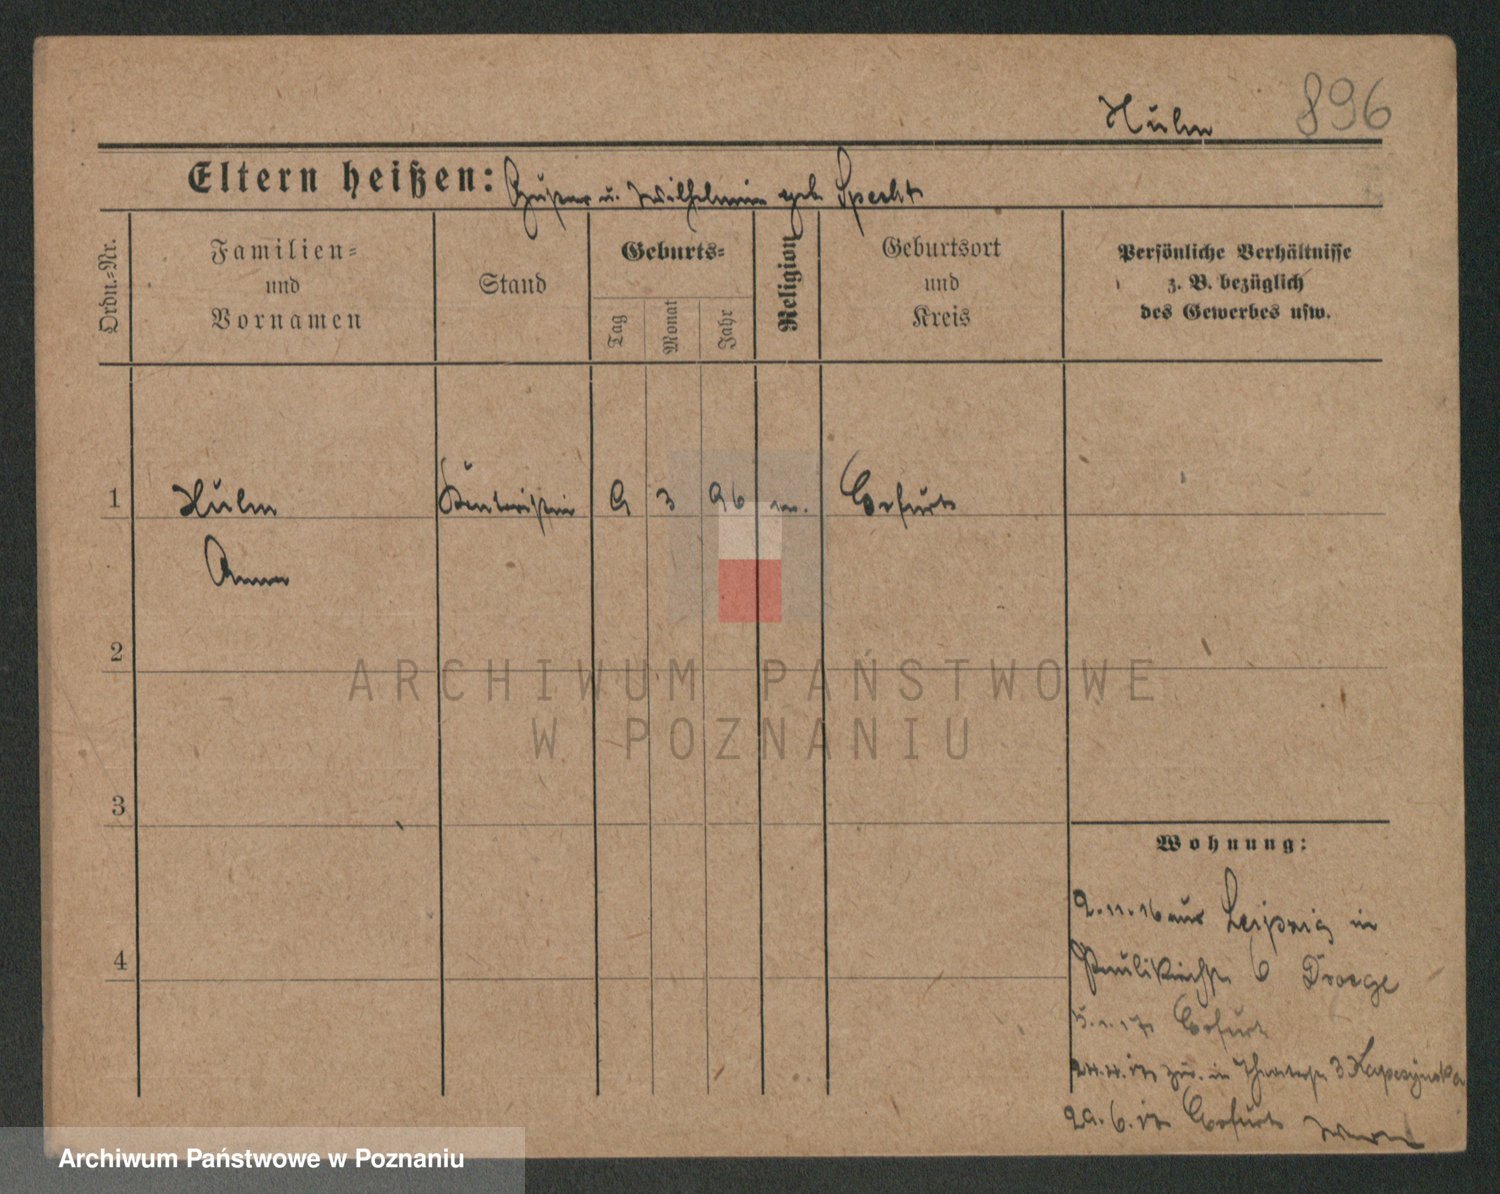 Hulm 896
Eltern heißen: Gustav u. Wilhelmine geb. Specht
Ordn.-Nr.
Familien-
und
Vornamen
Stand
Geburts-
Tag
Monat
Jahr
Religion
Geburtsort
und
Kreis
Persönliche Verhältnisse
z. B. bezüglich
des Gewerbes usw.
1 Hulm 9 3 96 Erfurt
Anna
2
3
4
Wohnung:
2.11.16 aus Leipzig in
Paulikirchstr 6 Droege
5.1.17 Erfurt
24.4.17 zur. in Theaterstr 3
29.6.17 Erfurt
ARCHIWUM PAŃSTWOWE
W POZNANIU
Archiwum Państwowe w Poznaniu